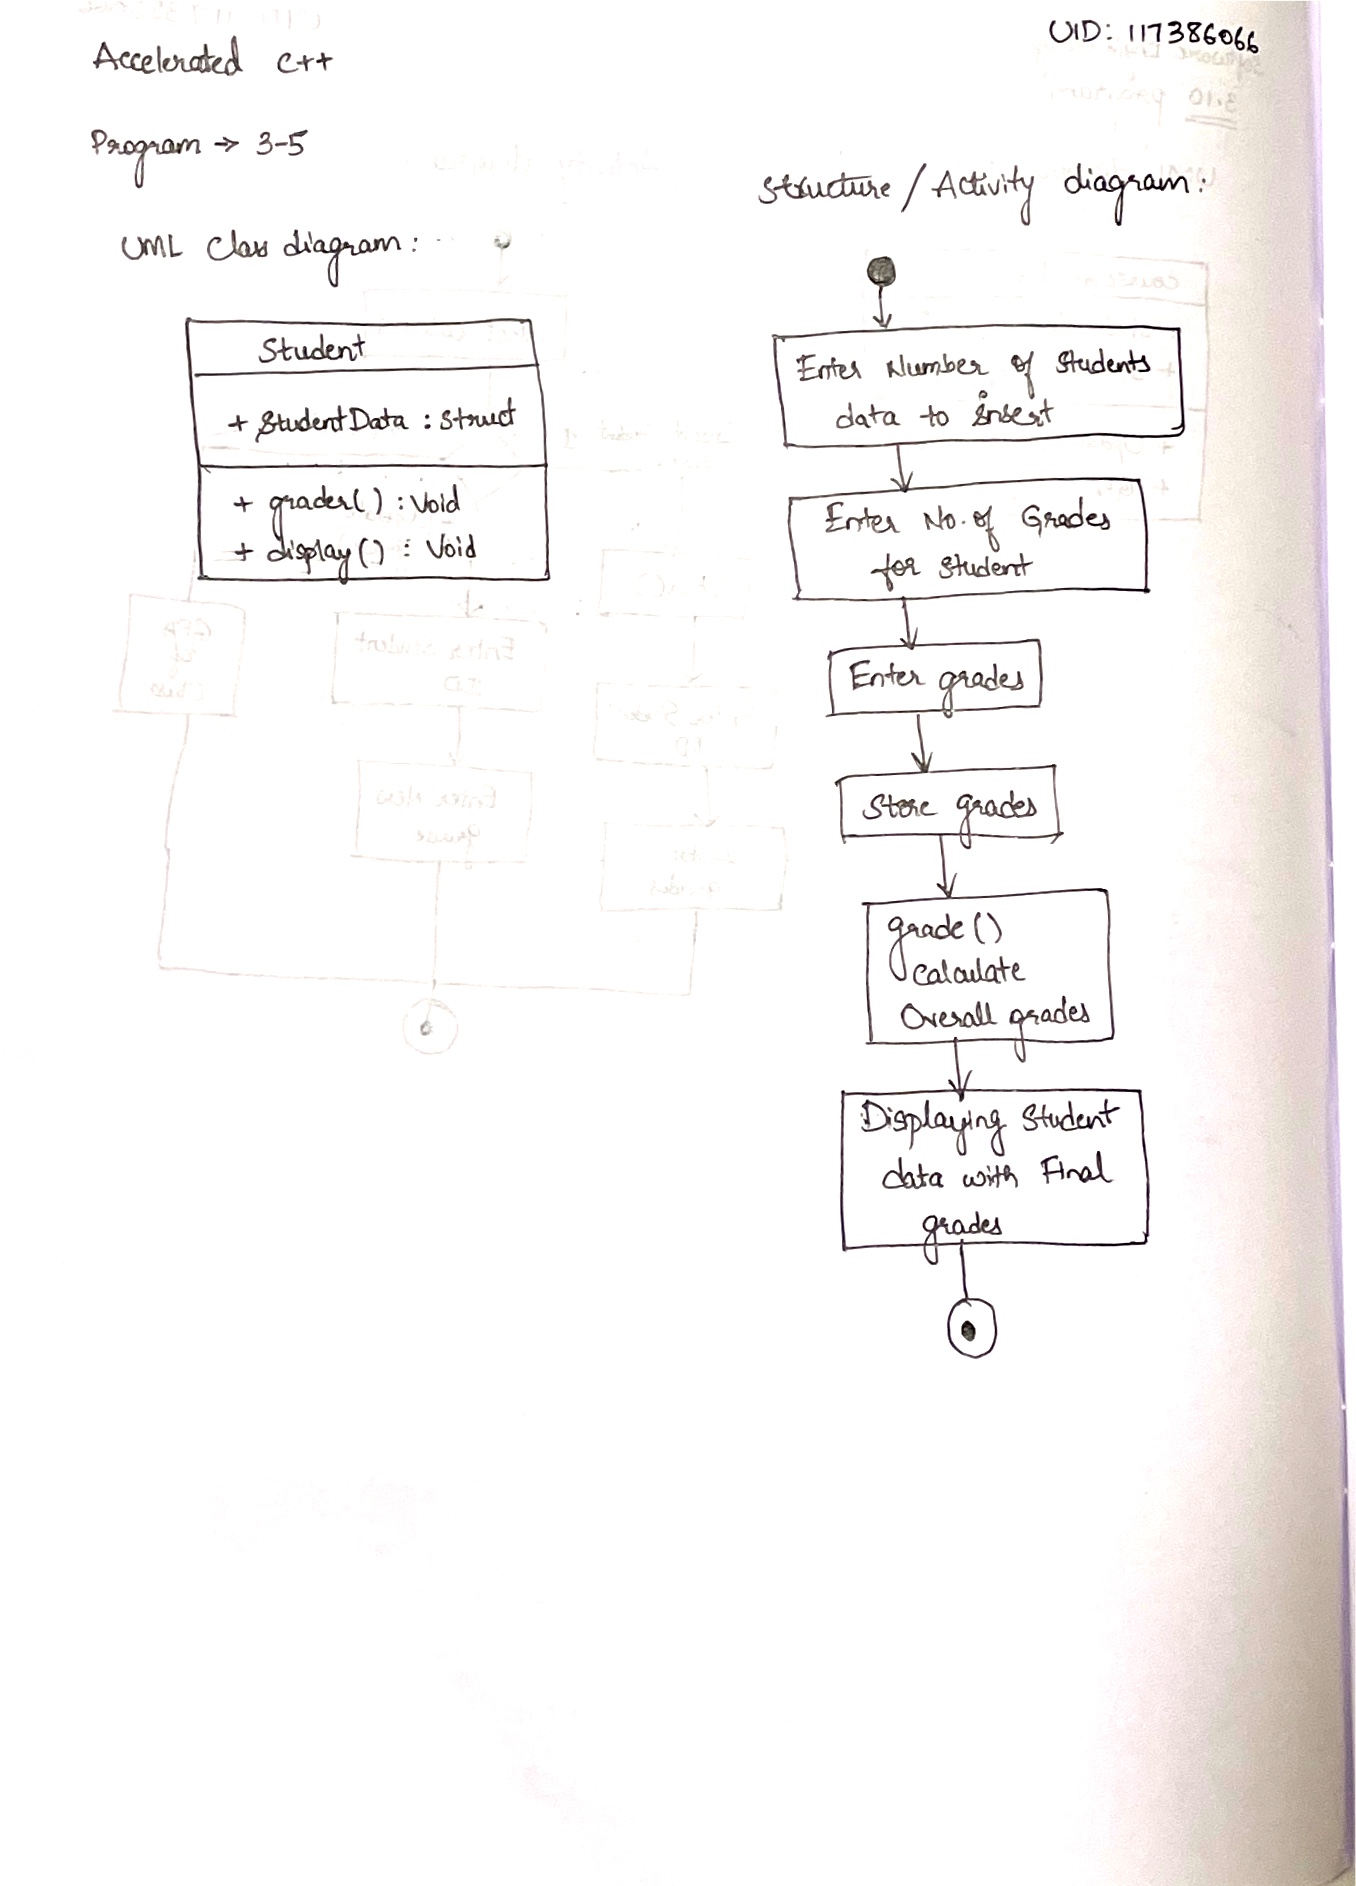 UID: 117386066
Accelerated C++
Program → 3-5
UML Class diagram:
Student
+ StudentData : Struct
+ grader() : Void
+ display() : Void
Structure / Activity diagram:
Enter Number of Students
data to insert
Enter No. of Grades
for Student
Enter grades
Store grades
grade()
Calculate
Overall grades
Displaying Student
data with Final
grades